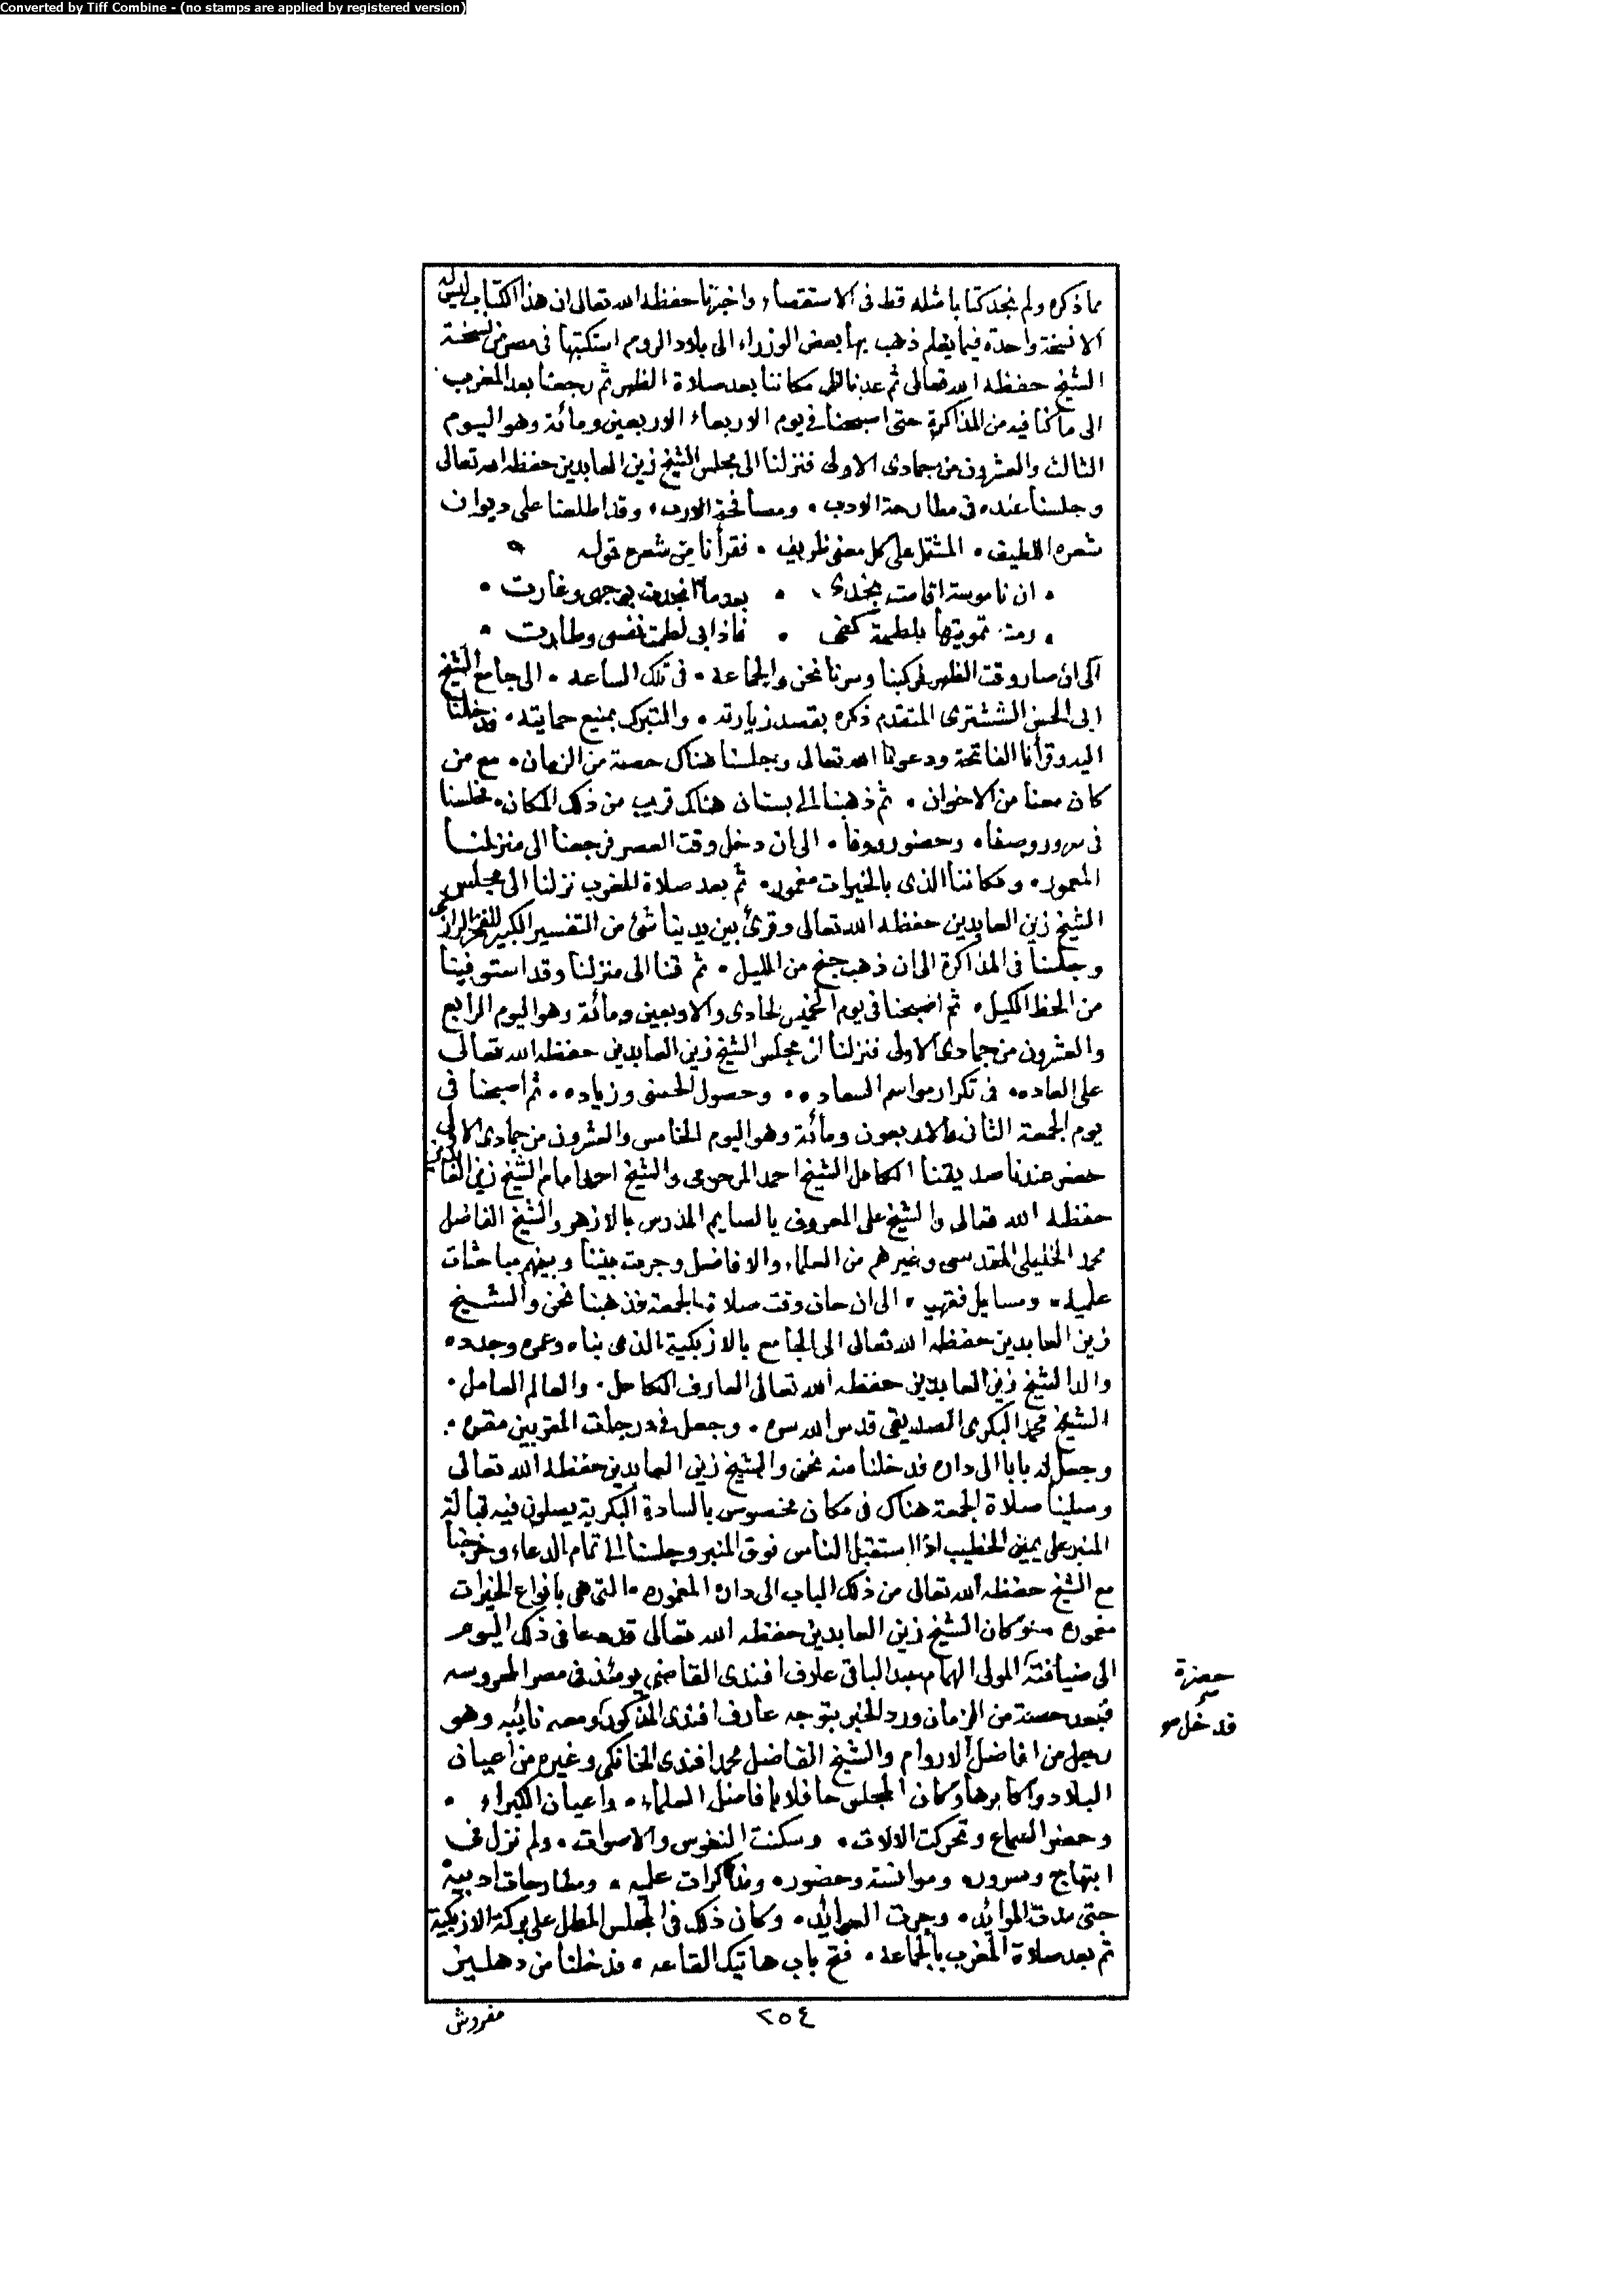 Converted by Tiff Combine - (no stamps are applied by registered version)
مما ذكره ولم نجد كتابا مثله قط فى الاستقصاء واخبرنا حفظه الله تعالى ان هذا الكتاب ليس له
الا نسخة واحدة فيما يعلم ذهب بها بعض الوزراء الى بلاد الروم استكتبها فى مصر من نسخة
الشيخ حفظه الله تعالى ثم عدنا الى مكاننا بعد صلاة الظهر ثم رجعنا بعد المغرب
الى ما كنا فيه من المذاكرة حتى اصبحنا فى يوم الاربعاء الاربعين ومائة وهو اليوم
الثالث والعشرون من جمادى الاولى فنزلنا الى مجلس الشيخ زين العابدين حفظه الله تعالى
وجلسنا عنده فى مطارحة الادب ۰ ومصافحة الارب ۰ وقد اطلعنا على ديوان
شعره اللطيف ۰ المشتمل على كل معنى ظريف ۰ فقرأنا من شعره قوله
۰ ان ناموسة اقامت بخدى ۰ بعدما انجدت بوجهى وغارت ۰
۰ رمت تمويتها بلطمة كفى ۰ فاذا بى لطمت نفسى وطارت ۰
الى ان صار وقت الظهر فركبنا وسرنا نحن والجماعه ۰ فى تلك الساعه ۰ الى جامع الشيخ
ابى الحسن الششترى المتقدم ذكره بقصد زيارته ۰ والتبرك بمنيع حمايته ۰ فدخلنا
اليه وقرأنا الفاتحة ودعونا الله تعالى وجلسنا هناك حصة من الزمان ۰ مع من
كان معنا من الاخوان ۰ ثم ذهبنا الى بستان هناك قريب من ذلك المكان ۰ فجلسنا
فى سرور وصفاء ۰ وحضور ووفاء ۰ الى ان دخل وقت العصر فرجعنا الى منزلنا
المعمور ۰ ومكاننا الذى بالخيرات مغمور ۰ ثم بعد صلاة المغرب نزلنا الى مجلس
الشيخ زين العابدين حفظه الله تعالى وقرئ بين يدينا شئ من التفسير الكبير للفخر الرازى
وجلسنا فى المذاكرة الى ان ذهب جنح من الليل ۰ ثم قمنا الى منزلنا وقد استوفينا
من الحظ الكيل ۰ ثم اصبحنا فى يوم الخميس الحادى والاربعين ومائة وهو اليوم الرابع
والعشرون من جمادى الاولى فنزلنا الى مجلس الشيخ زين العابدين حفظه الله تعالى
على العاده ۰ فى تكرار مواسم السعاده ۰ وحصول الحسنى وزياده ۰ ثم اصبحنا فى
يوم الجمعة الثانى والاربعون ومائة وهو اليوم الخامس والعشرون من جمادى الاولى
حضر عندنا صديقنا الكامل الشيخ احمد المرحومى والشيخ احمد امام الشيخ زين العابدين
حفظه الله تعالى والشيخ على المعروف بالصايم المدرس بالازهر والشيخ الفاضل
محمد الخليلى المقدسى وغيرهم من العلماء والافاضل وجرت بيننا وبينهم مباحثات
علميه ۰ ومسايل فقهيه ۰ الى ان حان وقت صلاة الجمعة فذهبنا نحن والشيخ
زين العابدين حفظه الله تعالى الى الجامع بالازبكية الذى بناه وعمره وجدده
والد الشيخ زين العابدين حفظه الله تعالى العارف الكامل ۰ والعالم العامل ۰
الشيخ محمد البكرى الصديقى قدس الله سره ۰ وجعل فى درجات المقربين مقره ۰
وجعل له بابا الى داره فدخلنا منه نحن والشيخ زين العابدين حفظه الله تعالى
وصلينا صلاة الجمعة هناك فى مكان مخصوص بالسادة البكرية يصلون فيه قبالة
المنبر على يمين الخطيب اذا استقبل الناس فوق المنبر وجلسنا الى تمام الدعاء وخرجنا
مع الشيخ حفظه الله تعالى من ذلك الباب الى داره المعموره ۰ التى هى بانواع الخيرات
مغموره وكان الشيخ زين العابدين حفظه الله تعالى قد دعا فى ذلك اليوم
الى ضيافته المولى الهمام عبد الباقى عارف افندى القاضى يومئذ فى مصر المحروسه
حضرة
فبعد حصة من الزمان ورد الخبر بتوجه عارف افندى المذكور ومعه نائبه وهو
فدخل
رجل من افاضل الاروام والشيخ الفاضل محمد افندى الخانكى وغيره من اعيان
البلاد واكابرها وكان المجلس حافلا بافاضل العلماء ۰ واعيان الكبراء ۰
وحضر السماع وتحركت الالات ۰ وسكنت النفوس والاصوات ۰ ولم نزل فى
ابتهاج وسرور ۰ وموانسة وحضور ۰ ومذاكرات علميه ۰ ومطارحات ادبية
حتى مدت الموائد ۰ وجرت العوائد ۰ وكان ذلك فى المجلس المطل على بركة الازبكية
ثم بعد صلاة المغرب بالجماعه ۰ فتح باب هاتيك القاعه ۰ فدخلنا من دهليز
٢٥٤
مفروش